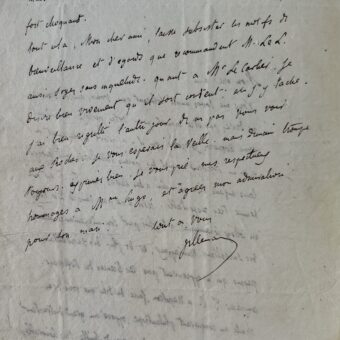 fort choquant.
tout cela, Mon cher ami, laisse subsister les motifs de
bienveillance et d'égards que recommandent M. Le L.
ainsi soyez sans inquiétude. quant à Mr Le Carlier, je
désire bien vivement qu'il soit content. et j'y tâche.
j'ai bien regretté l'autre jour de ne pas vous voir
aux Roches. je vous espérais la veille, mais demain trompe
toujours. exprimez bien, je vous prie, mes respectueux
hommages à Mme Hugo, et agréez mon admiration
pour son mari. tout à vous
Villemain